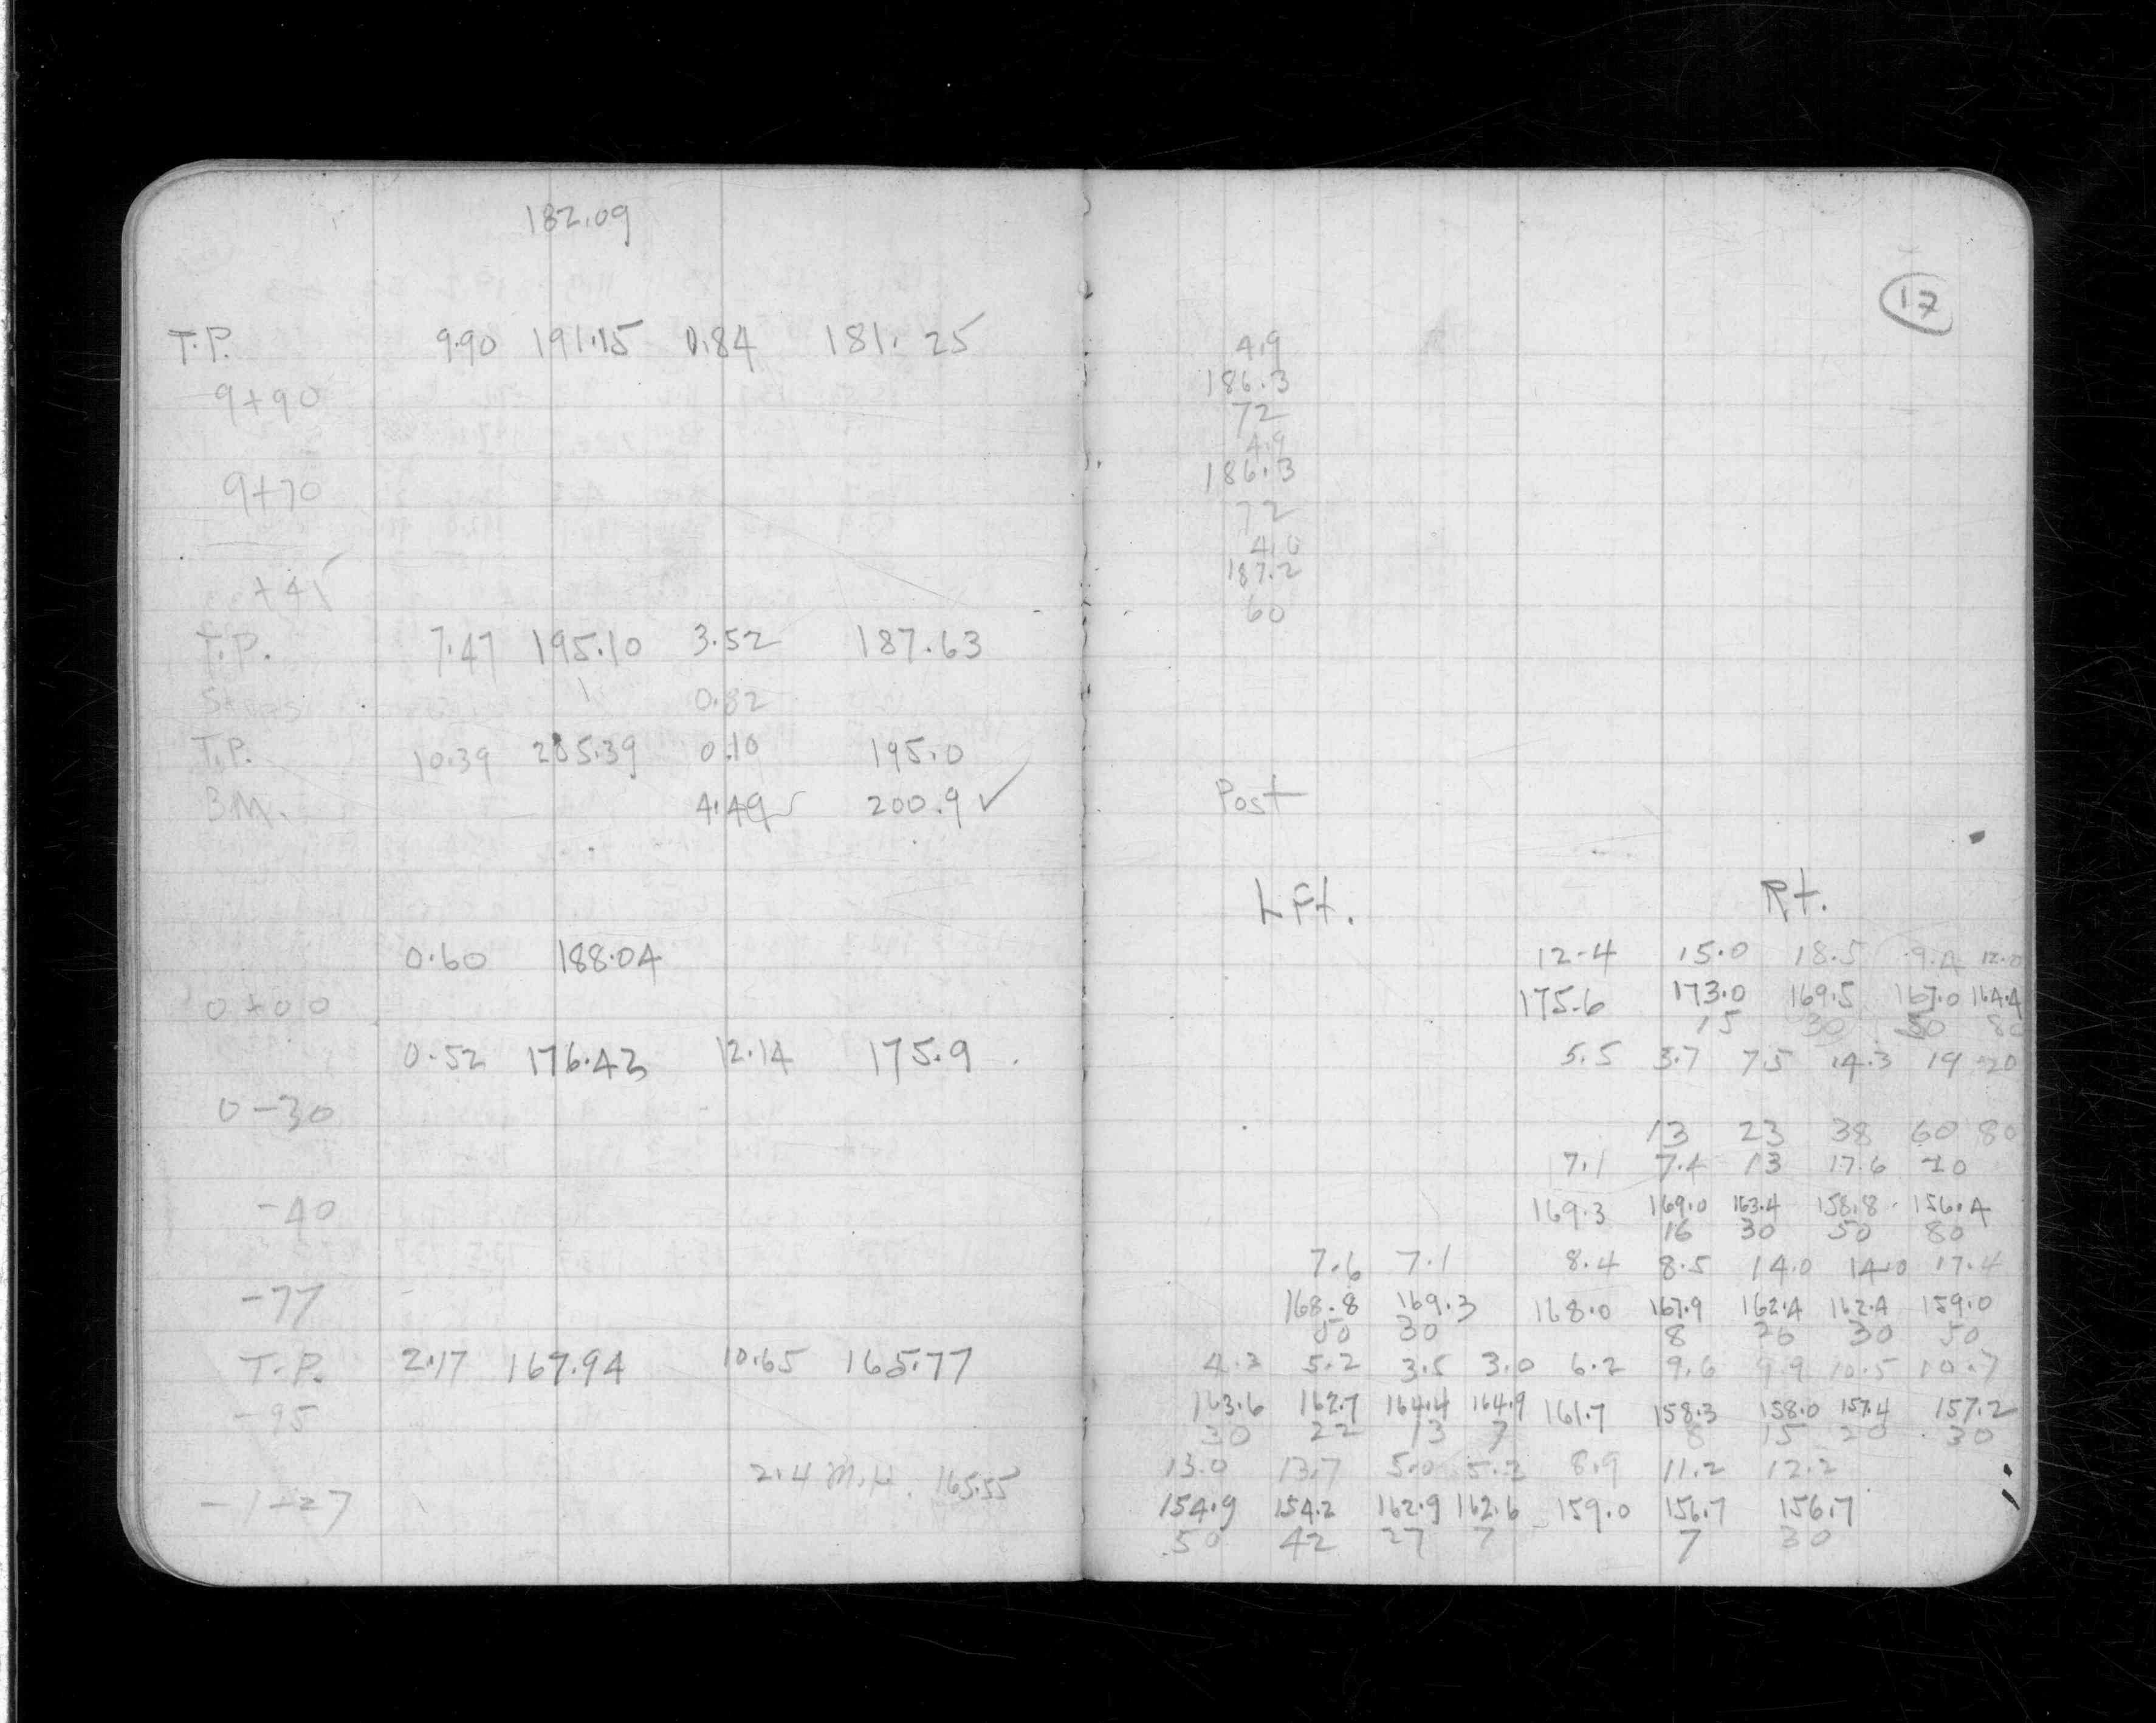 182.09
T.P. 9.90 191.15 0.84 181.25
9+90
9+70
+45
T.P. 7.47 195.10 3.52 187.63
0.82
T.P. 10.39 205.39 0.10 195.0
B.M. 4.49 200.9 ✓
0.60 188.04
0+00
0.52 176.43 12.14 175.9
0-30
-40
-77
T.P. 2.17 167.94 10.65 165.77
-95
2.4 M.H. 165.55
-1+27
17
4.9
186.3
72
4.9
186.3
72
187.2
60
Post
Lft. Rt.
12.4 15.0 18.5 12.0
175.6 173.0 169.5 167.0 164.4
15 30 50 80
5.5 3.7 7.5 14.3 19 20
13 23 38 60 80
7.1 7.4 13 17.6 20
169.3 169.0 163.4 158.8 156.4
16 30 50 80
7.6 7.1 8.4 8.5 14.0 14.0 17.4
168.8 169.3 168.0 167.9 162.4 162.4 159.0
50 30 8 26 30 50
4.3 5.2 3.5 3.0 6.2 9.6 9.9 10.5 10.7
163.6 162.7 164.4 164.9 161.7 158.3 158.0 157.4 157.2
30 22 13 7 8 15 20 30
13.0 13.7 5.0 5.3 8.9 11.2 12.2
154.9 154.2 162.9 162.6 159.0 156.7 156.7
50 42 27 7 7 30